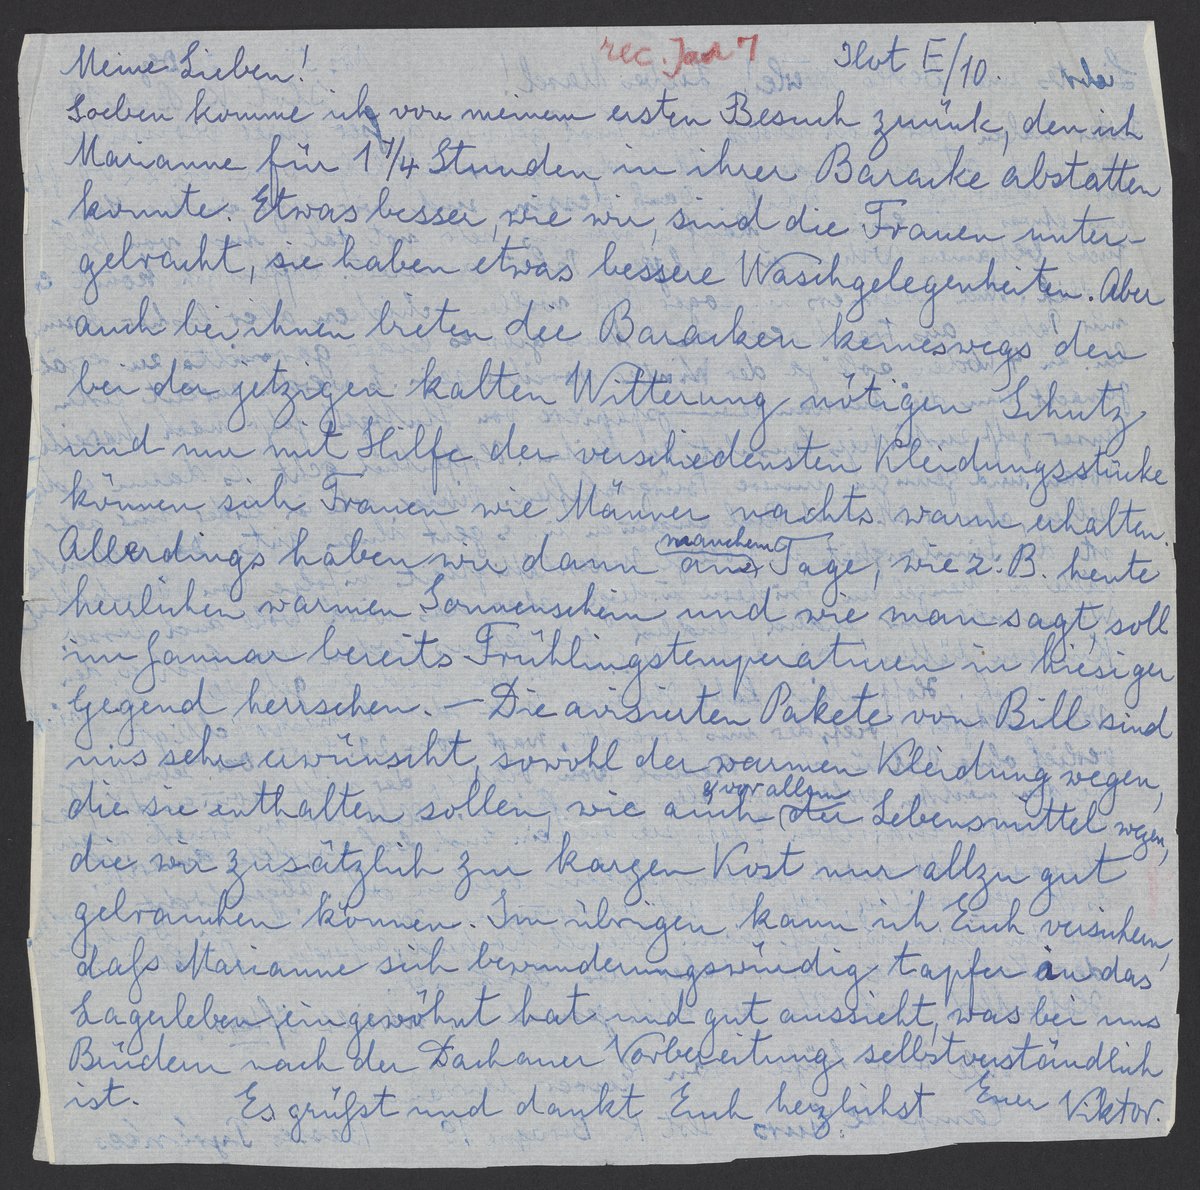 rec. Jan 7
Ilot E/10.
Meine Lieben!
Soeben komme ich von meinem ersten Besuch zurück, den ich
Marianne für 1 1/4 Stunden in ihrer Baracke abstatten
konnte. Etwas besser, wie wir, sind die Frauen unter-
gebracht, sie haben etwas bessere Waschgelegenheiten. Aber
auch bei ihnen bieten die Baracken keineswegs den
bei der jetzigen kalten Witterung nötigen Schutz
und nur mit Hilfe der verschiedensten Kleidungsstücke
können sich Frauen wie Männer nachts warm erhalten.
Allerdings haben wir dann manchem Tage, wie z. B. heute
herrlichen warmen Sonnenschein und wie man sagt, soll
im Januar bereits Frühlingstemperaturen in hiesiger
Gegend herrschen. — Die avisierten Pakete von Bill sind
uns sehr erwünscht, sowohl der warmen Kleidung wegen,
die sie enthalten sollen, wie auch & vor allem der Lebensmittel wegen,
die wir zusätzlich zur kargen Kost nur allzu gut
gebrauchen können. Im übrigen kann ich Euch versichern,
daß Marianne sich bewunderungswürdig tapfer in das
Lagerleben eingewöhnt hat und gut aussieht, was bei uns
Brüdern nach der Dachauer Vorbereitung selbstverständlich
ist. Es grüßt und dankt Euch herzlichst Euer Viktor.